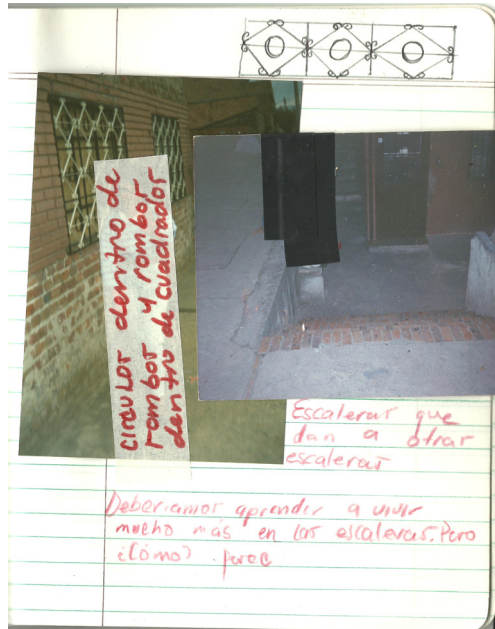 circulos dentro de
rombos y rombos
dentro de cuadrados
Escaleras que
dan a otras
escaleras
Deberiamos aprender a vivir
mucho más en las escaleras. Pero
¿Cómo? . perec